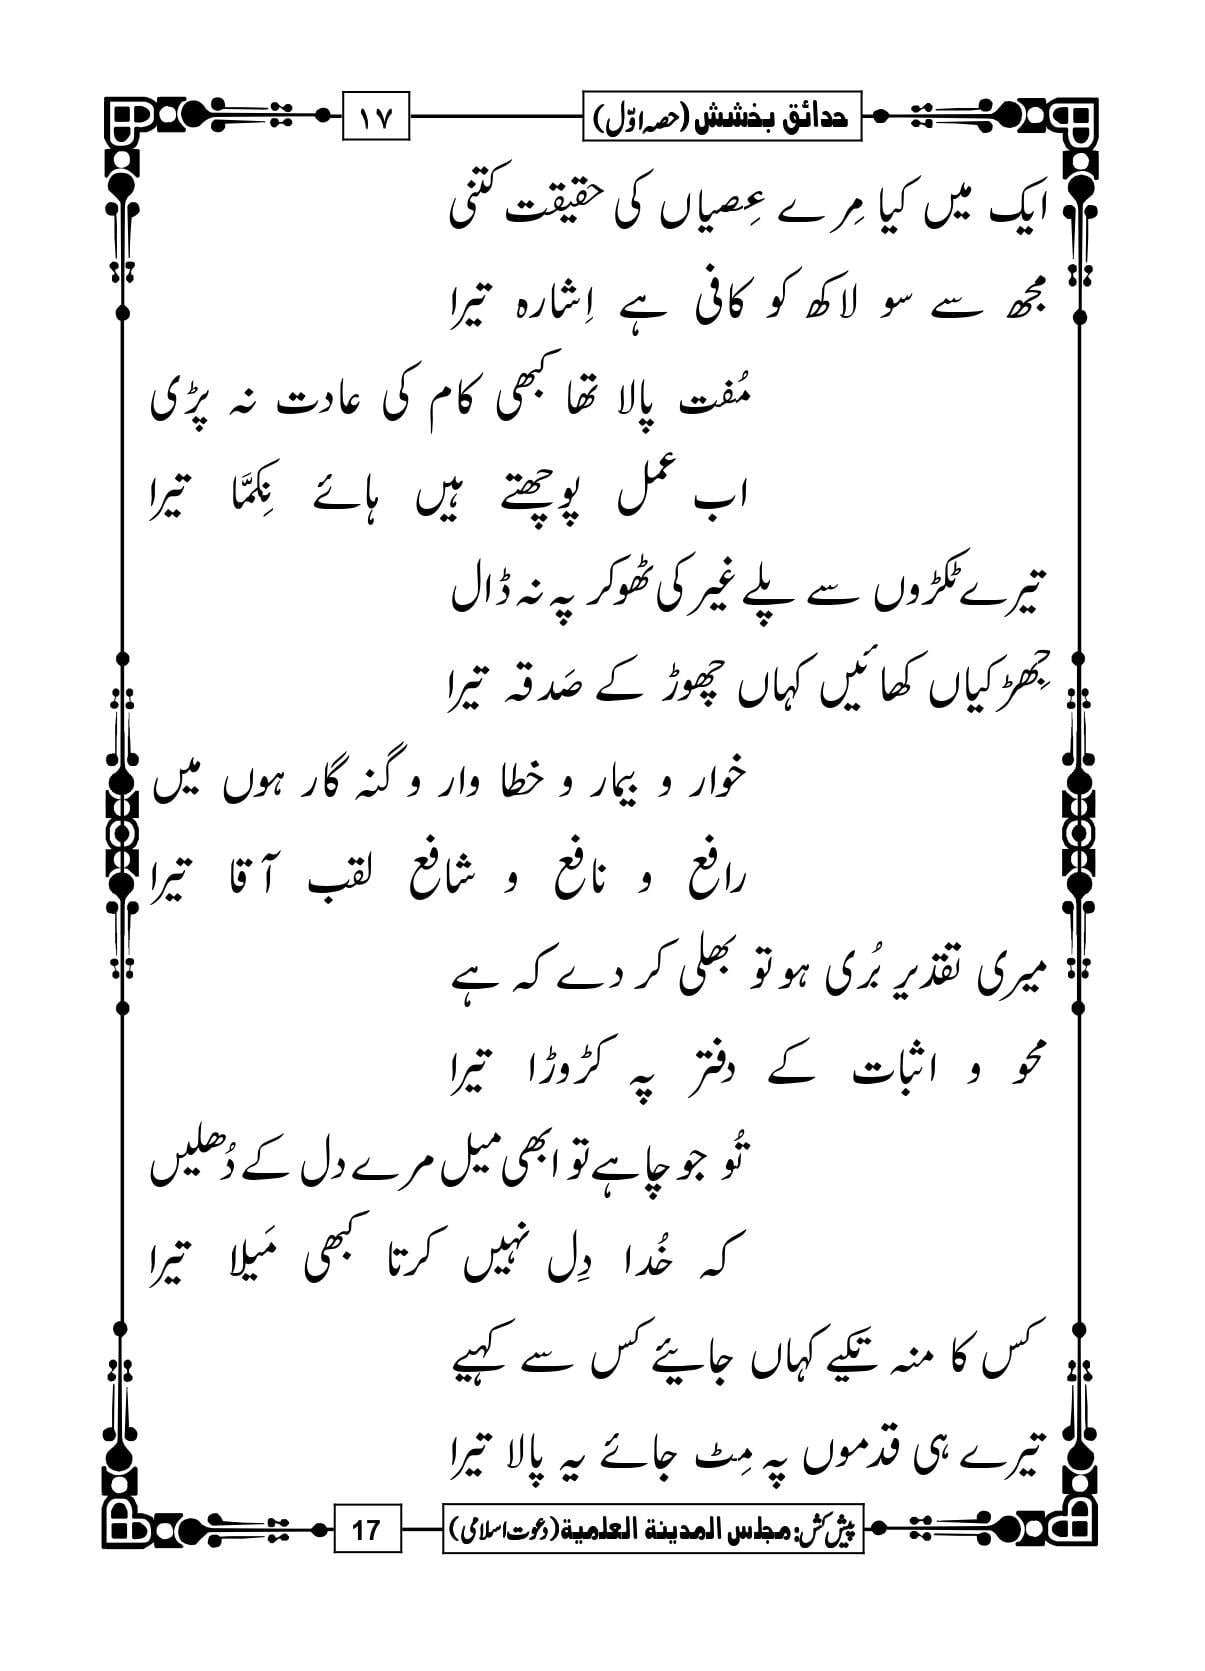 حدائق بخشش (حصہ اوّل) ۱۷
ایک میں کیا مِرے عِصیاں کی حقیقت کتنی
مجھ سے سو لاکھ کو کافی ہے اِشارہ تیرا
مُفت پالا تھا کبھی کام کی عادت نہ پڑی
اب عمل پوچھتے ہیں ہائے نِکمَّا تیرا
تیرے ٹکڑوں سے پلے غیر کی ٹھوکر پہ نہ ڈال
جِھڑکیاں کھائیں کہاں چھوڑ کے صَدقہ تیرا
خوار و بیمار و خطا وار و گنہ گار ہوں میں
رافع و نافع و شافع لقب آقا تیرا
میری تقدیر بُری ہو تو بھلی کر دے کہ ہے
محو و اثبات کے دفتر پہ کڑوڑا تیرا
تُو جو چاہے تو ابھی میل مرے دل کے دُھلیں
کہ خُدا دِل نہیں کرتا کبھی مَیلا تیرا
کس کا منہ تکیے کہاں جائیے کس سے کہیے
تیرے ہی قدموں پہ مِٹ جائے یہ پالا تیرا
پیش کش: مجلس المدینۃ العلمیۃ (دعوت اسلامی) 17